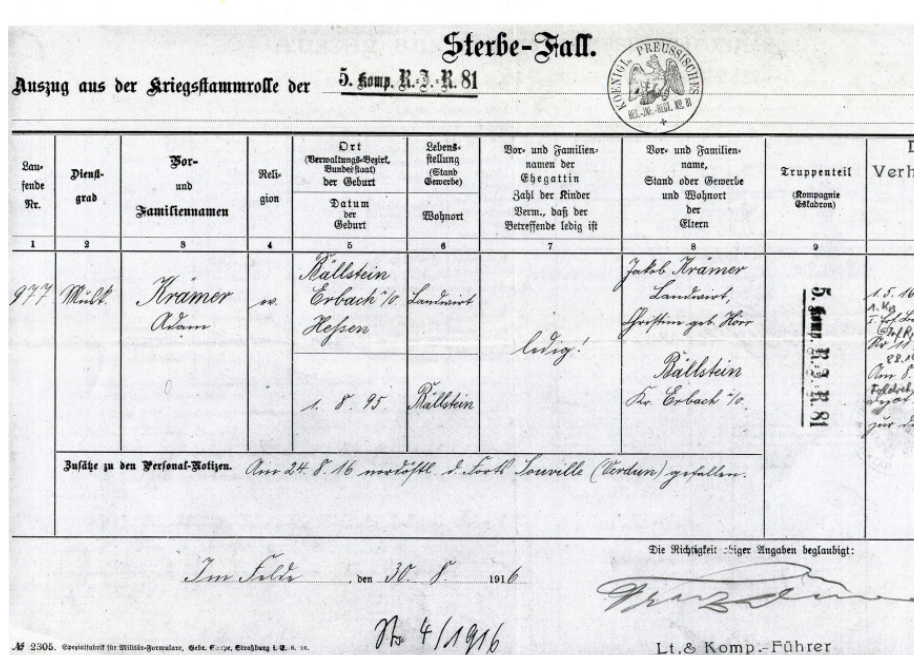 Sterbe-Fall.
Auszug aus der Kriegsstammrolle der 5. Komp. R.-I.-R. 81
KOENIGL. PREUSSISCHES
RES.-INF.-REGT. No. 81
Lau-
fende
Nr.
Dienst-
grad
Vor-
und
Familiennamen
Reli-
gion
Ort
(Verwaltungs-Bezirk,
Bundesstaat)
der Geburt
Datum
der
Geburt
Lebens-
stellung
(Stand
Gewerbe)
Wohnort
Vor- und Familien-
namen der
Ehegattin
Zahl der Kinder
Verm., daß der
Betreffende ledig ist
Vor- und Familien-
name,
Stand oder Gewerbe
und Wohnort
der
Eltern
Truppenteil
(Kompagnie
Eskadron)
D
Verh
1 2 3 4 5 6 7 8 9
977
Musk.
Krämer
Adam
ev.
Rällstein
Erbach i/O.
Hessen
1. 8. 95
Landwirt
Rällstein
ledig!
Jakob Krämer
Landwirt,
Christine geb. Hörr
Rällstein
Kr. Erbach i/O.
5. Komp. R.-I.-R. 81
1.5.16
Am 8.
zur
Zusätze zu den Personal-Notizen. Am 24. 8. 16 nordöstl. d. Forts Souville (Verdun) gefallen.
Die Richtigkeit obiger Angaben beglaubigt:
Im Felde, den 30. 8. 1916
№ 2305. Spezialfabrik für Militär-Formulare, Gebr. Straßburg i. E.
No 4/1916
Lt. & Komp.-Führer